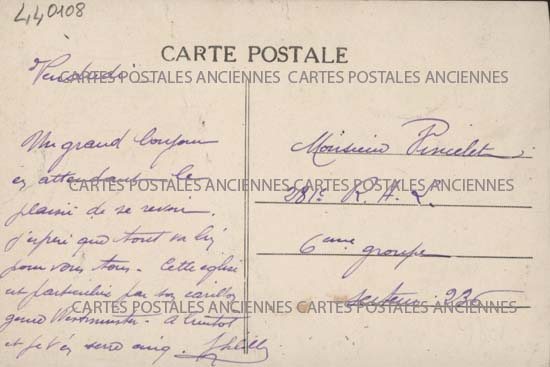 440108
CARTE POSTALE
Vendredi
CARTES POSTALES ANCIENNES CARTES POSTALES ANCIENNES
Un grand bonjour
en attendant le
CARTES POSTALES ANCIENNES CARTES POSTALES ANCIENNES
plaisir de se revoir.
j'espère que tout va bien
pour vous tous. Cette église
est particulière par son carillon
CARTES POSTALES ANCIENNES CARTES POSTALES ANCIENNES
genre Westminster. A bientôt
et je t'en serre cinq.
Monsieur Pincelet
281e R. A. L.
6eme groupe
secteur 236